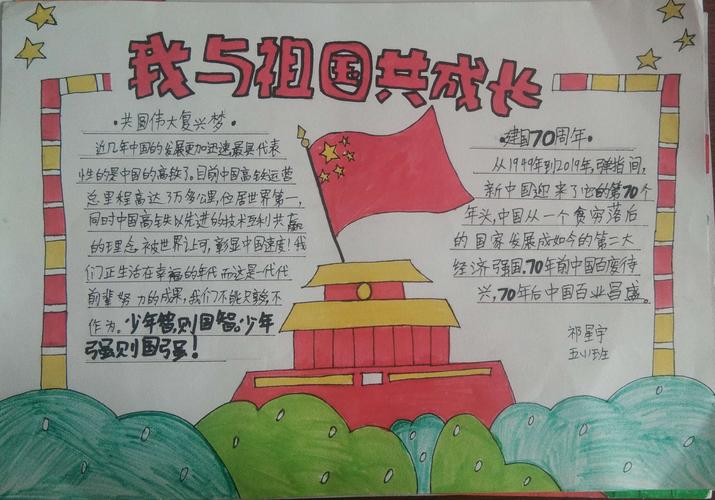 我与祖国共成长
·共圆伟大复兴梦·
近几年中国的发展更加迅速最具代表
性的是中国的高铁了。目前中国高铁运营
总里程高达3万多公里,位居世界第一,
同时中国高铁以先进的技术互利共赢
的理念被世界认可,彰显中国速度!我
们正生活在幸福的年代而这是一代代
前辈努力的成果,我们不能只享不
作为。少年智则国智。少年
强则国强!
·建国70周年·
从1949年到2019年,弹指间,
新中国迎来了它的第70个
年头,中国从一个贫穷落后
的国家发展成如今的第二大
经济强国。70年前中国百废待
兴,70年后中国百业昌盛。
祁星宇
五(1)班